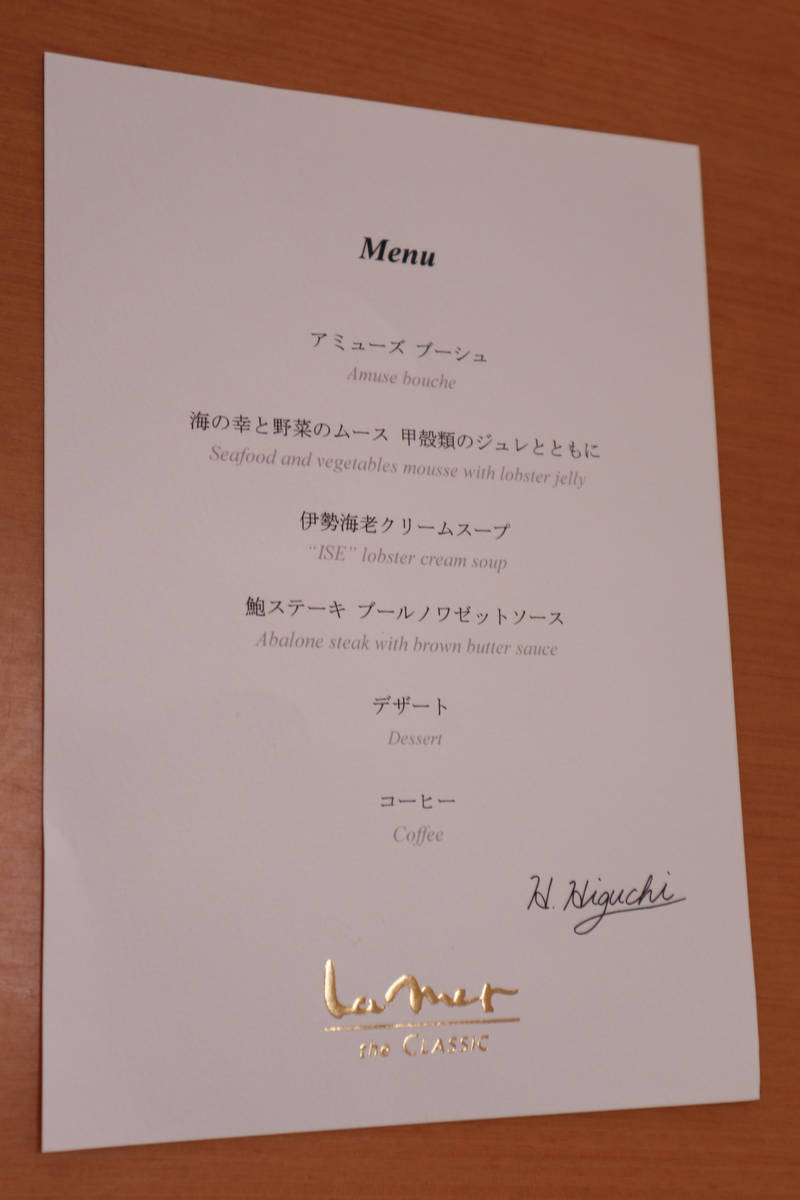 Menu
アミューズ ブーシュ
Amuse bouche
海の幸と野菜のムース 甲殻類のジュレとともに
Seafood and vegetables mousse with lobster jelly
伊勢海老クリームスープ
“ISE” lobster cream soup
鮑ステーキ ブールノワゼットソース
Abalone steak with brown butter sauce
デザート
Dessert
コーヒー
Coffee
H. Higuchi
La mer
the CLASSIC